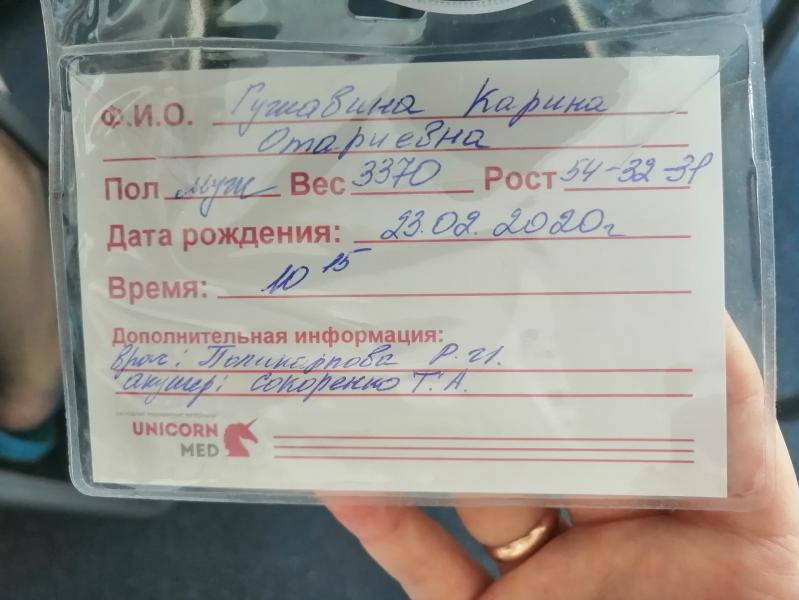 Ф.И.О. Гужавина Карина
Отариевна
Пол муж Вес 3370 Рост 54-32-31
Дата рождения: 23.02.2020г
Время: 10 15
Дополнительная информация:
врач: Поликарпова Р.
акушер: Сокоренко Т.А.
UNICORN
MED